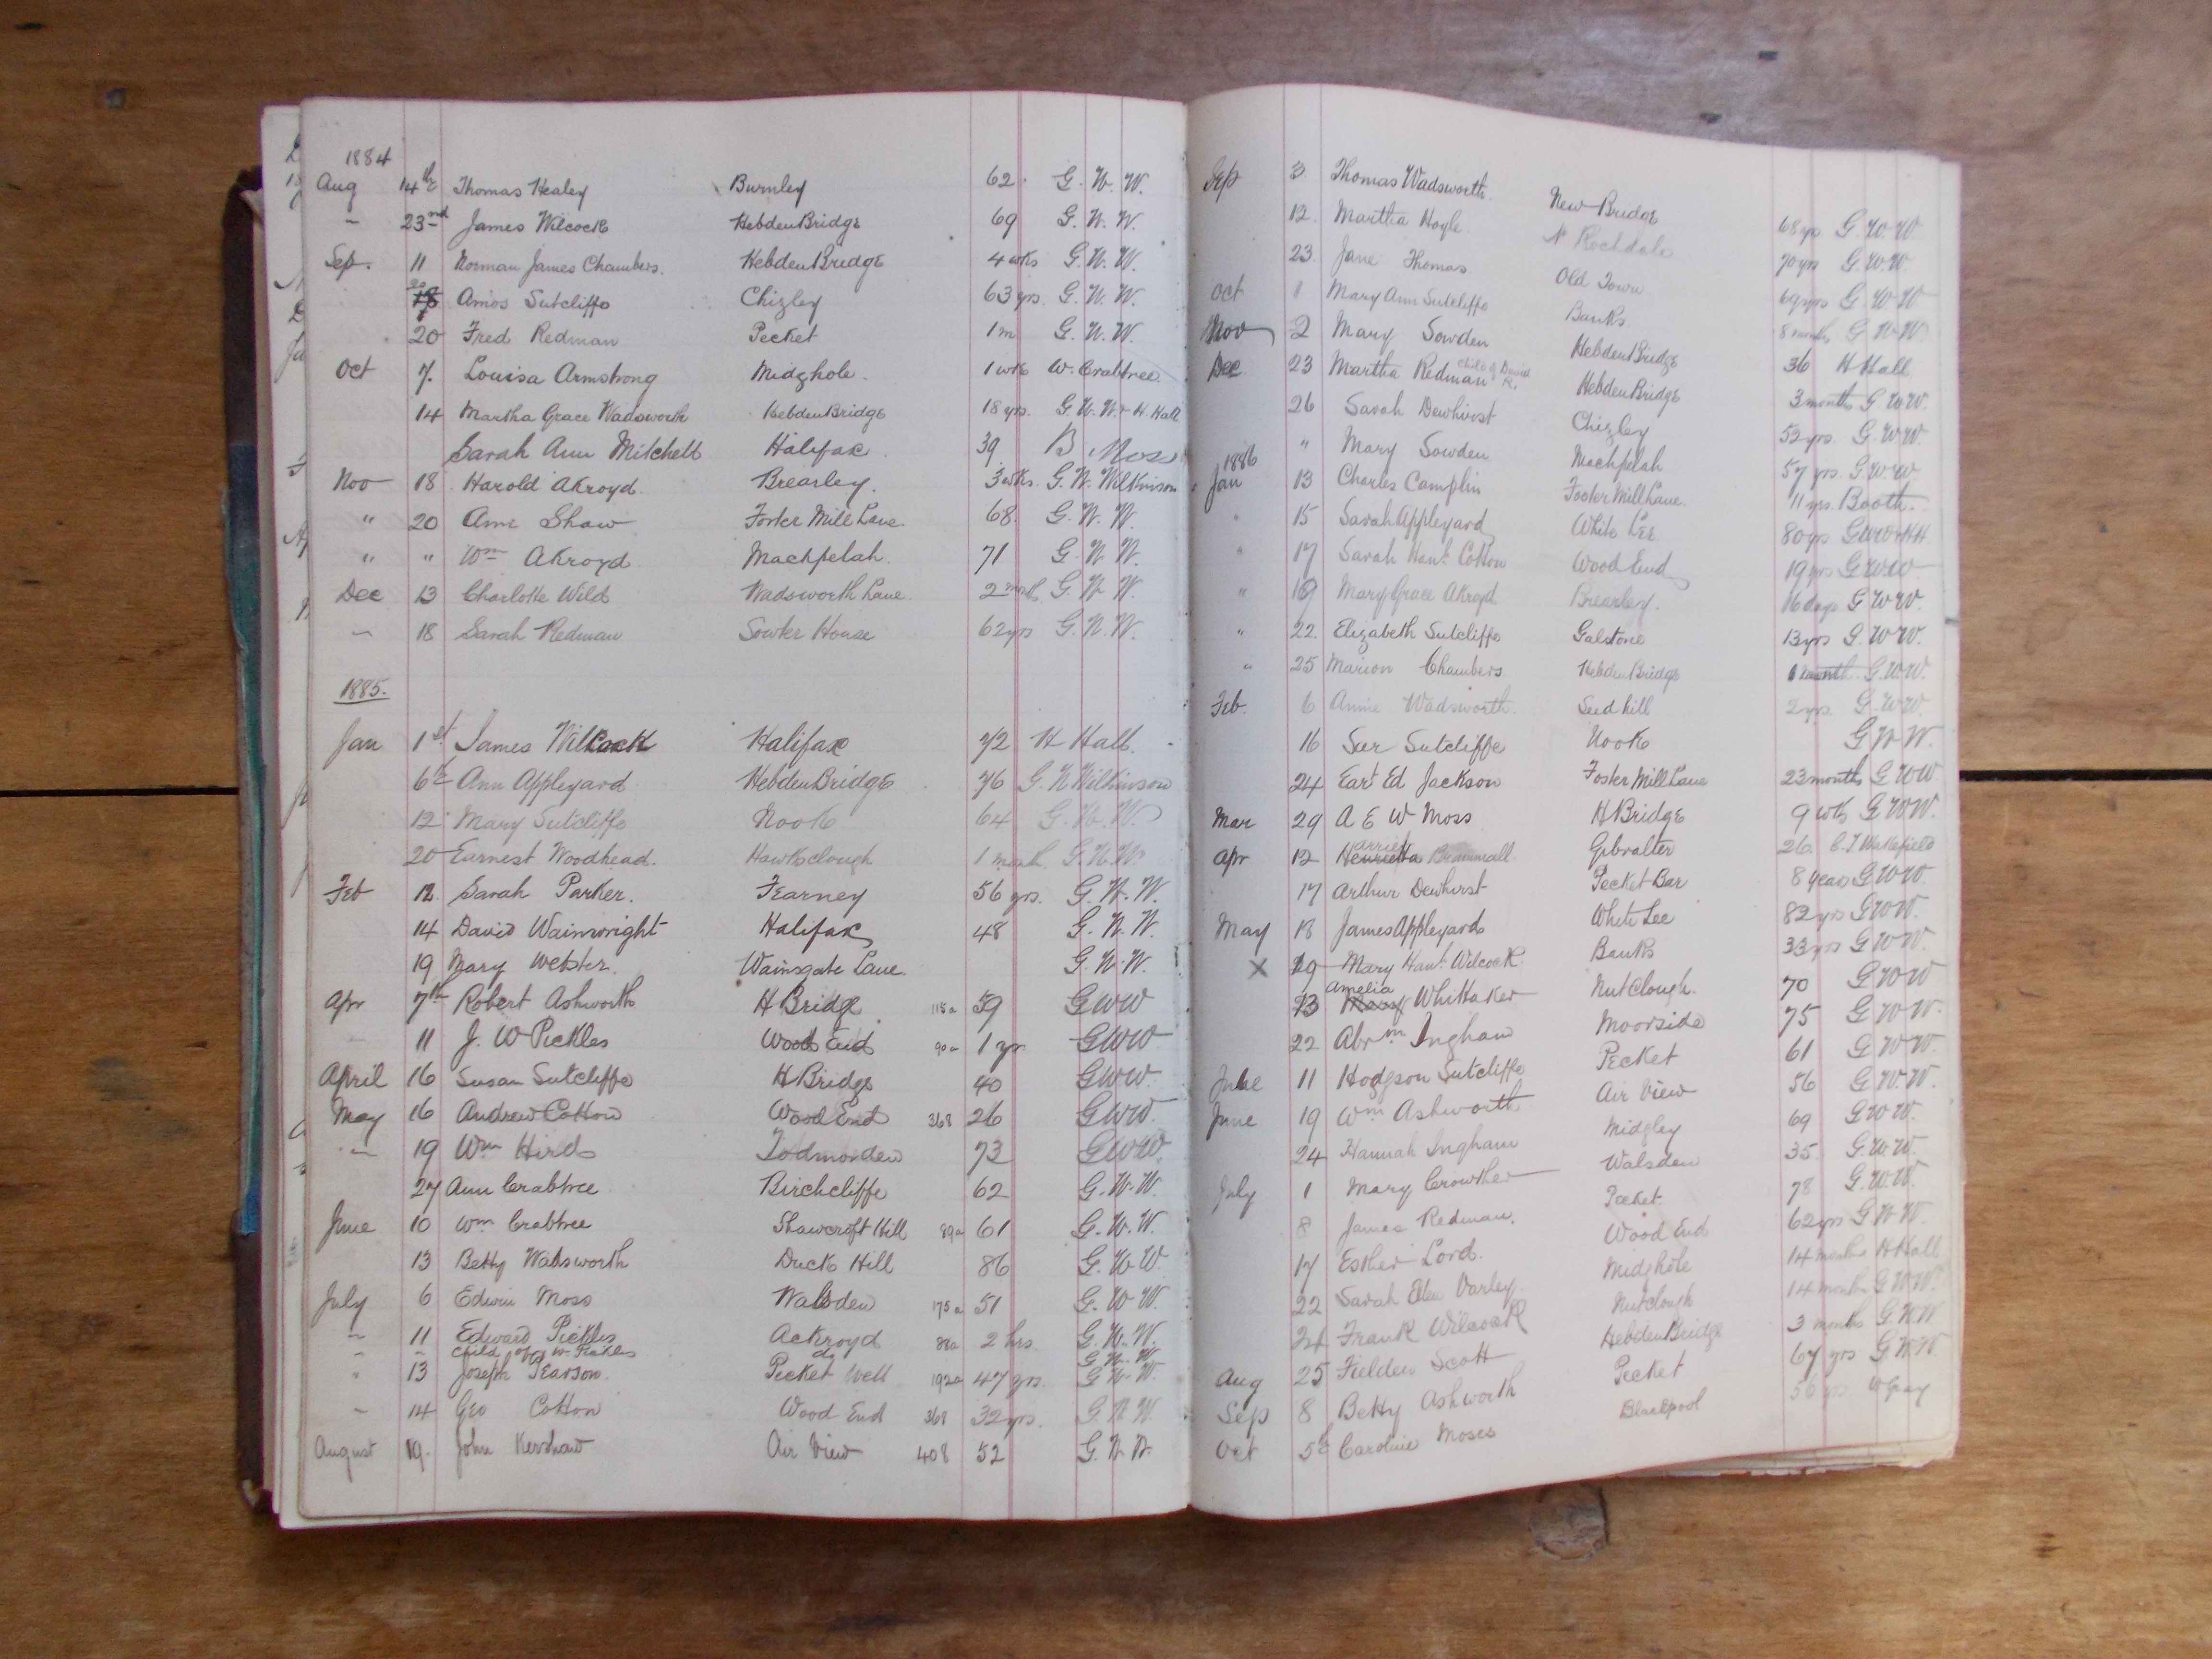 1884
Aug 14th Thomas Healey Burnley 62 G. W. W.
23rd James Wilcock Hebden Bridge 69 G. W. W.
Sep. 11 Norman James Chambers. Hebden Bridge 4 wks G. W. W.
Amos Sutcliffe Chizley 63 yrs. G. W. W.
20 Fred Redman Pecket 1m G. W. W.
Oct 7. Louisa Armstrong Midghole. 1 wk W. Crabtree.
14 Martha Grace Wadsworth Hebden Bridge 18 yrs. G. W. W. & H. Hall
Sarah Ann Mitchell Halifax. 39 B Moss
Nov 18 Harold Akroyd. Brearley. 3 wks. G. W. Wilkinson
" 20 Ann Shaw Foster Mill Lane. 68. G. W. W.
" " Wm Akroyd Machpelah. 71 G. W. W.
Dec 13 Charlotte Wild Wadsworth Lane. 2 mnth G. W. W.
18 Sarah Redman Sowter House 62 yrs G. W. W.
1885.
Jan 1st James Wilcock Halifax 72 H Hall.
6th Ann Appleyard Hebden Bridge 76 G. W Wilkinson
12 Mary Sutcliffe Nook 64 G. W. W.
20 Earnest Woodhead. Hawksclough 1 month G. W. W.
Feb 12. Sarah Parker. Fearney 56 yrs. G. W. W.
14 David Wainwright Halifax 48 G. W. W.
19 Mary Webster. Wainsgate Lane. G. W. W.
Apr 7th Robert Ashworth H Bridge 115a 59 GWW
11 J. W Pickles Wood End 90a 1 yr GWW
April 16 Susan Sutcliffe H Bridge 40 GWW.
May 16 Andrew Cotton Wood End 368 26 GWW.
19 Wm Hirds Todmorden 73 GWW.
27 Ann Crabtree Birchcliffe 62 G. W. W.
June 10 Wm Crabtree Shawcroft Hill 89a 61 G. W. W.
13 Betty Wadsworth Duck Hill 86 G. W W.
July 6 Edwin Moss Walsden 175a 51 G. W W.
11 Edward Pickles Ackroyd 88a 2 hrs. G. W. W.
child of W. Pickles do G. W. W.
13 Joseph Pearson. Pecket Well 192a 47 yrs. G W. W.
14 Geo Cotton Wood End 368 32 yrs. G. W W.
August 19. John Kershaw Air View 408 52 G. W. W.
Sep 3. Thomas Wadsworth. New Bridge 68 yrs G. W. W
12. Martha Hoyle. N Rochdale 70 yrs G. W. W.
23. Jane Thomas Old Town 69 yrs G. W W
Oct 1 Mary Ann Sutcliffe Banks 8 months G. W W
Nov 2 Mary Sowden Hebden Bridge 36 H Hall.
Dec. 23 Martha Redman child of David R. Hebden Bridge 3 months G. W W.
26 Sarah Dewhirst Chizley 52 yrs. G. W W.
" Mary Sowden Machpelah 57 yrs. G. W. W
1886
Jan 13 Charles Camplin Foster Mill Lane. 11 yrs. Booth.
" 15 Sarah Appleyard White Lee 80 yrs GWW & HH
" 17 Sarah Hant Cotton Wood End 19 yrs G. W W
" 19 Mary Grace Akroyd Brearley. 16 days G. W W.
" 22. Elizabeth Sutcliffe Galstone 13 yrs G. W W.
" 25 Marion Chambers Hebden Bridge 1 month G. W W.
Feb. 6 Annie Wadsworth. Seed hill 2 yrs G. W W.
16 Sutcliffe Nook G W W.
24 Ed Jackson Foster Mill Lane 23 months G. W W
Mar 29 A E W Moss H Bridge 9 wks G. W W.
Apr 12 Henrietta Gibralter 26. Wakefield
17 Arthur Dewhirst Pecket Bar 8 years G W W.
May 18 James Appleyard White Lee 82 yrs G W W.
X 19 Mary Hant Wilcock. Banks 33 yrs G W W.
13 Amelia Whittaker Nutclough. 70 G W W
22 Abrm Ingham Moorside 75 G W W.
June 11 Hodgson Sutcliffe Pecket 61 G W W.
June 19 Wm Ashworth Air View 56 G. W. W.
24 Hannah Ingham Midgley 69 G. W W.
July 1 Mary Crowther Walsden 35. G. W. W.
8 James Redman. Pecket. 78 G. W. W.
17 Esther Lord. Wood End 62 yrs G. W W.
22 Sarah Ellen Varley. Midghole 14 months H Hall
24 Frank Wilcock Nutclough 14 months G W W.
Aug 25 Fielden Scott Hebden Bridge 3 months G. W W
Sep 8 Betty Ashworth Pecket 67 yrs G. W. W
Oct 5th Caroline Moses Blackpool W Gray